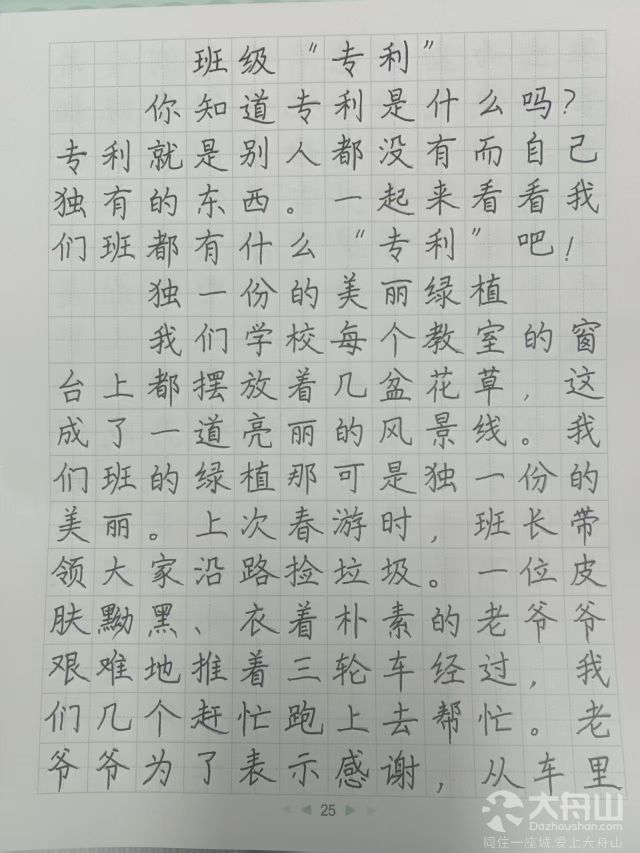 班级“专利”
你知道专利是什么吗?
专利就是别人都没有而自己
独有的东西。一起来看看我
们班都有什么“专利”吧!
独一份的美丽绿植
我们学校每个教室的窗
台上都摆放着几盆花草,这
成了一道亮丽的风景线。我
们班的绿植那可是独一份的
美丽。上次春游时,班长带
领大家沿路捡垃圾。一位皮
肤黝黑、衣着朴素的老爷爷
艰难地推着三轮车经过,我
们几个赶忙跑上去帮忙。老
爷爷为了表示感谢,从车里
25
大舟山
Dazhoushan.com
同住一座城.爱上大舟山